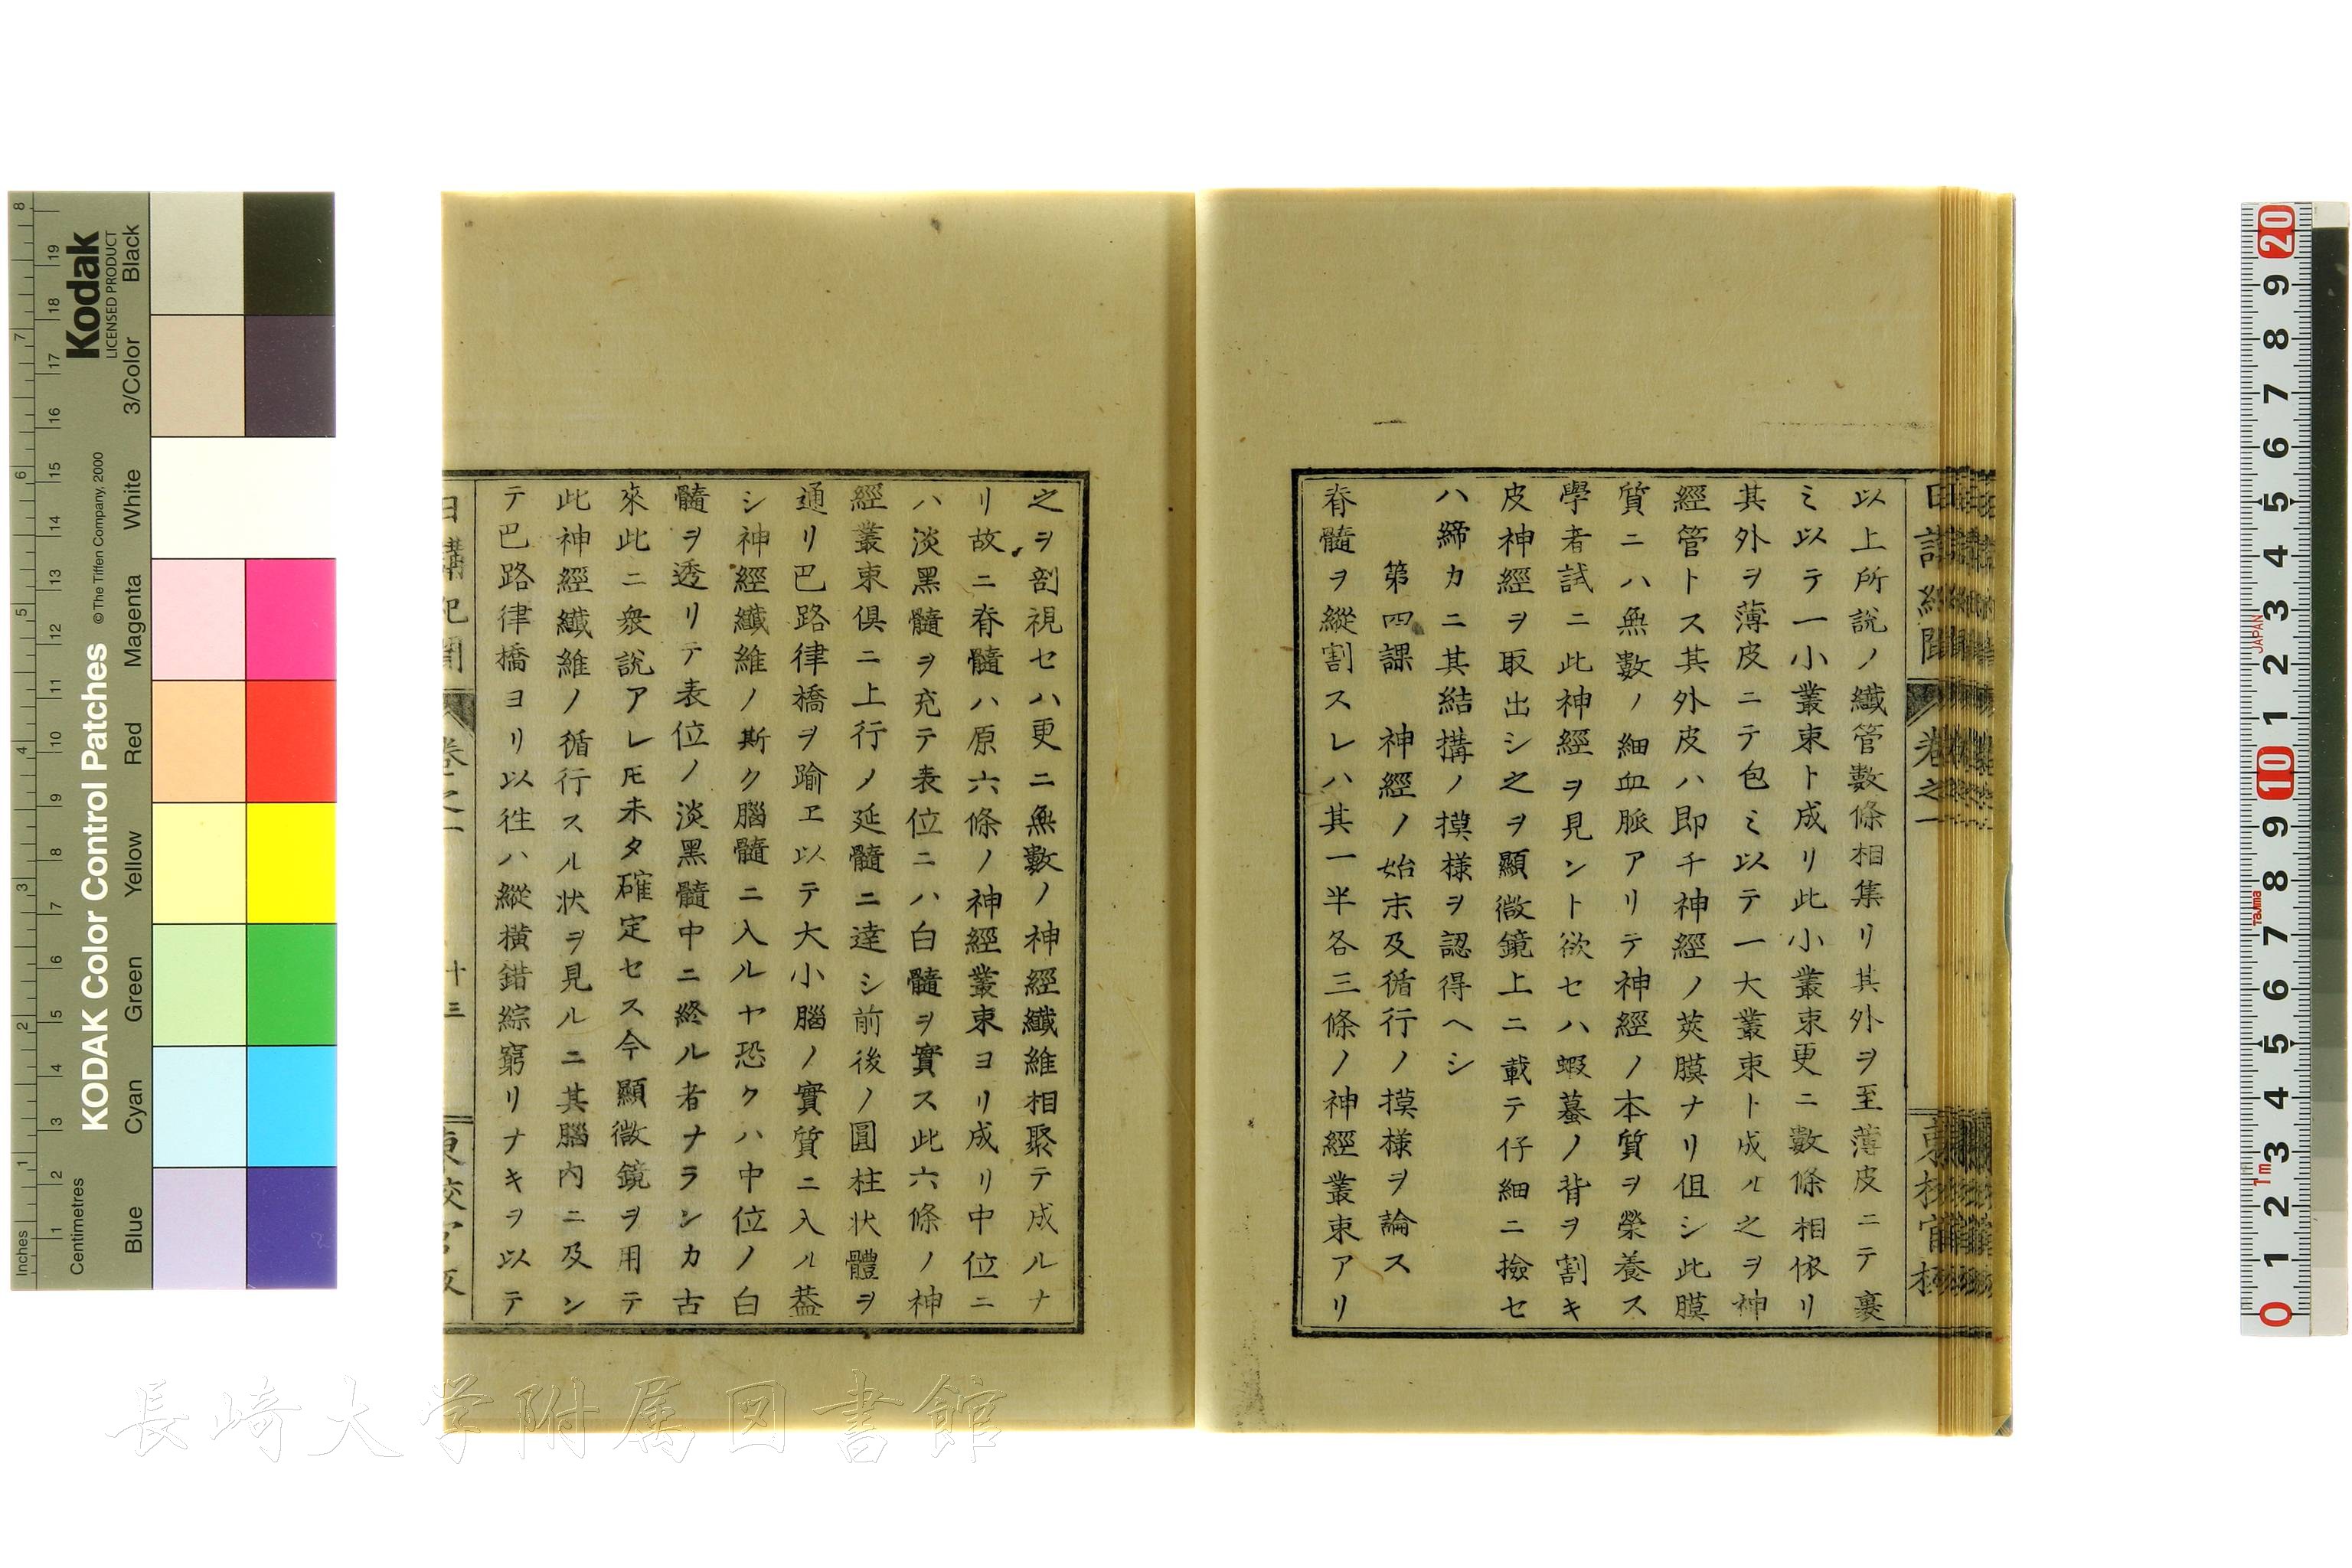 以上所說ノ纎管數條相集リ其外ヲ至薄皮ニテ裹
ミ以テ一小叢束ト成リ此小叢束更ニ數條相依リ
其外ヲ薄皮ニテ包ミ以テ一大叢束ト成ル之ヲ神
經管トス其外皮ハ即チ神經ノ莢膜ナリ伹シ此膜
質ニハ無數ノ細血脈アリテ神經ノ本質ヲ榮養ス
學者試ニ此神經ヲ見ント欲セハ蝦蟇ノ背ヲ割キ
皮神經ヲ取出シ之ヲ顯微鏡上ニ載テ仔細ニ撿セ
ハ締カニ其結搆ノ摸樣ヲ認得ヘシ
第四課 神經ノ始末及循行ノ摸樣ヲ論ス
脊髓ヲ縱割スレハ其一半各三條ノ神經叢束アリ
之ヲ剖視セハ更ニ無數ノ神經纎維相聚テ成ルナ
リ故ニ脊髓ハ原六條ノ神經叢束ヨリ成リ中位ニ
ハ淡黑髓ヲ充テ表位ニハ白髓ヲ實ス此六條ノ神
經叢束倶ニ上行ノ延髓ニ達シ前後ノ圓柱状體ヲ
通リ巴路律橋ヲ踰ヱ以テ大小腦ノ實質ニ入ル葢
シ神經纎維ノ斯ク腦髓ニ入ルヤ恐クハ中位ノ白
髓ヲ透リテ表位ノ淡黑髓中ニ終ル者ナランカ古
來此ニ衆說アレ𪜈未タ確定セス今顯微鏡ヲ用テ
此神經纎維ノ循行スル状ヲ見ルニ其腦内ニ及ン
テ巴路律橋ヨリ以徃ハ縱橫錯綜窮リナキヲ以テ
日講紀聞 卷之一 十三
長崎大学附属図書館
KODAK Color Control Patches © The Tiffen Company, 2000
Kodak
LICENSED PRODUCT
Inches
Centimetres
Blue Cyan Green Yellow Red Magenta White 3/Color Black
JAPAN
Tajima
1m